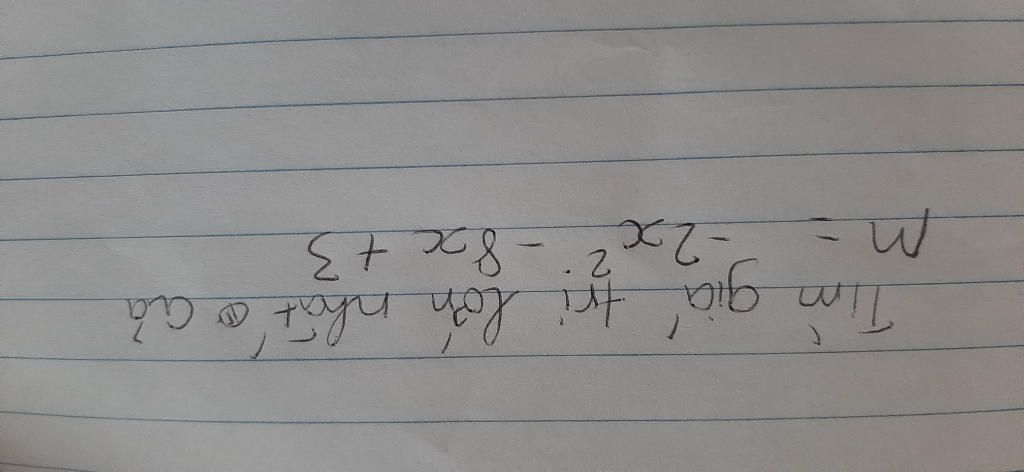 Tìm giá trị lớn nhất củả
M = -2x² - 8x + 3